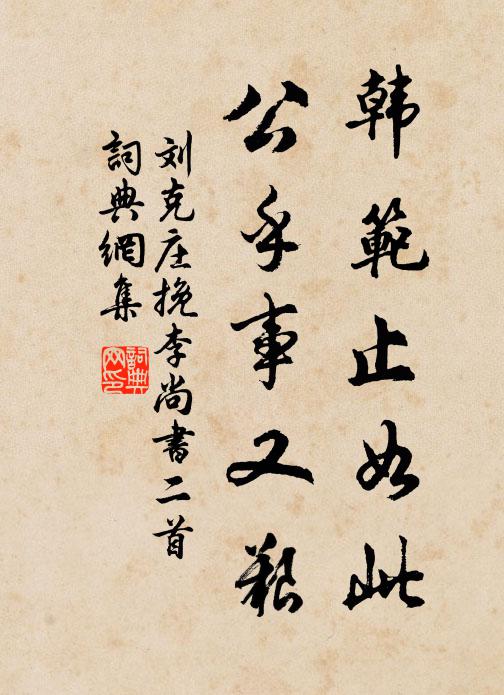 韩範止如此
公乎事又艱
刘克庄挽李尚書二首
詞典網集
詞典网印